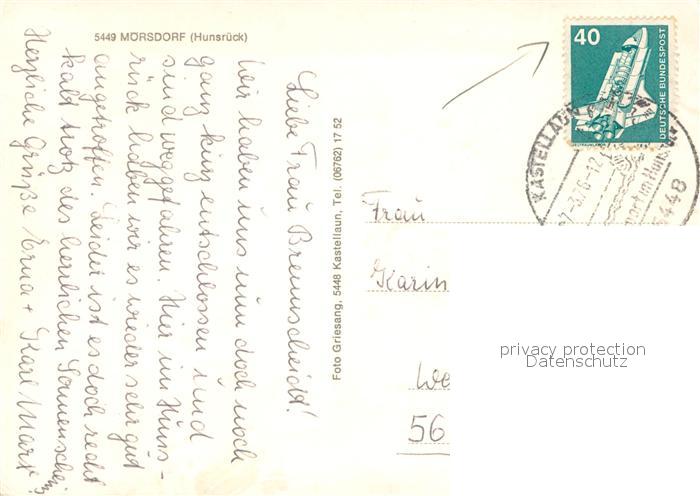 5449 MÖRSDORF (Hunsrück)
Liebe Frau Brennscheidt!
Wir haben uns nun doch noch
ganz kurz entschlossen und
sind weggefahren. Hier im Huns-
rück haben wir es wieder sehr gut
angetroffen. Leider ist es doch recht
kalt trotz des herrlichen Sonnenscheins.
Herzliche Grüße Erna + Karl Marx
Foto Griesang, 5448 Kastellaun, Tel. (06762) 17 52
40
DEUTSCHE BUNDESPOST
KASTELLAUN
5448
Frau
Karin
We
56
privacy protection
Datenschutz